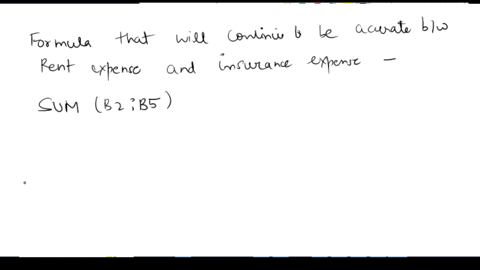 Formula that will continue to be accurate b/w
Rent expense and insurance expense –
SUM (B2:B5)